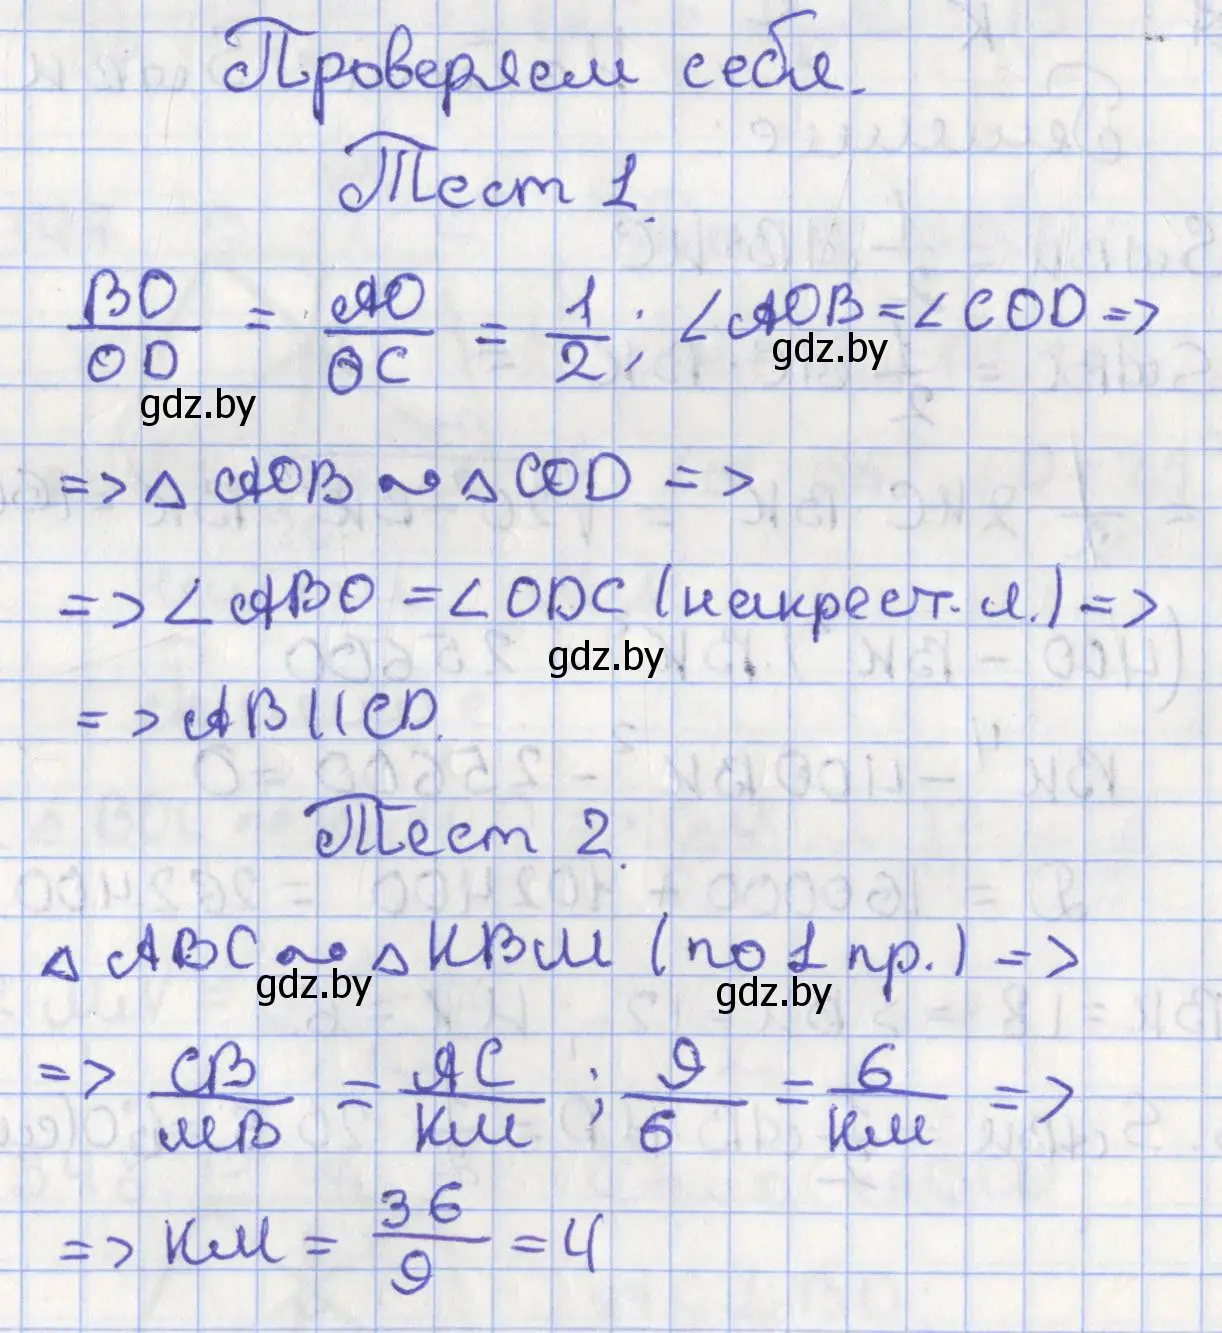 Проверяем себя.
Тест 1.
BO/OD = AO/OC = 1/2; ∠AOB = ∠COD =>
gdz.by
gdz.by
=> △ AOB ~ △ COD =>
=> ∠ABO = ∠ODC (накрест. л.) =>
gdz.by
=> AB || CD.
Тест 2.
△ ABC ~ △ KBM (по 1 пр.) =>
gdz.by
gdz.by
=> CB/MB = AC/KM ; 9/6 = 6/KM =>
=> KM = 36/9 = 4